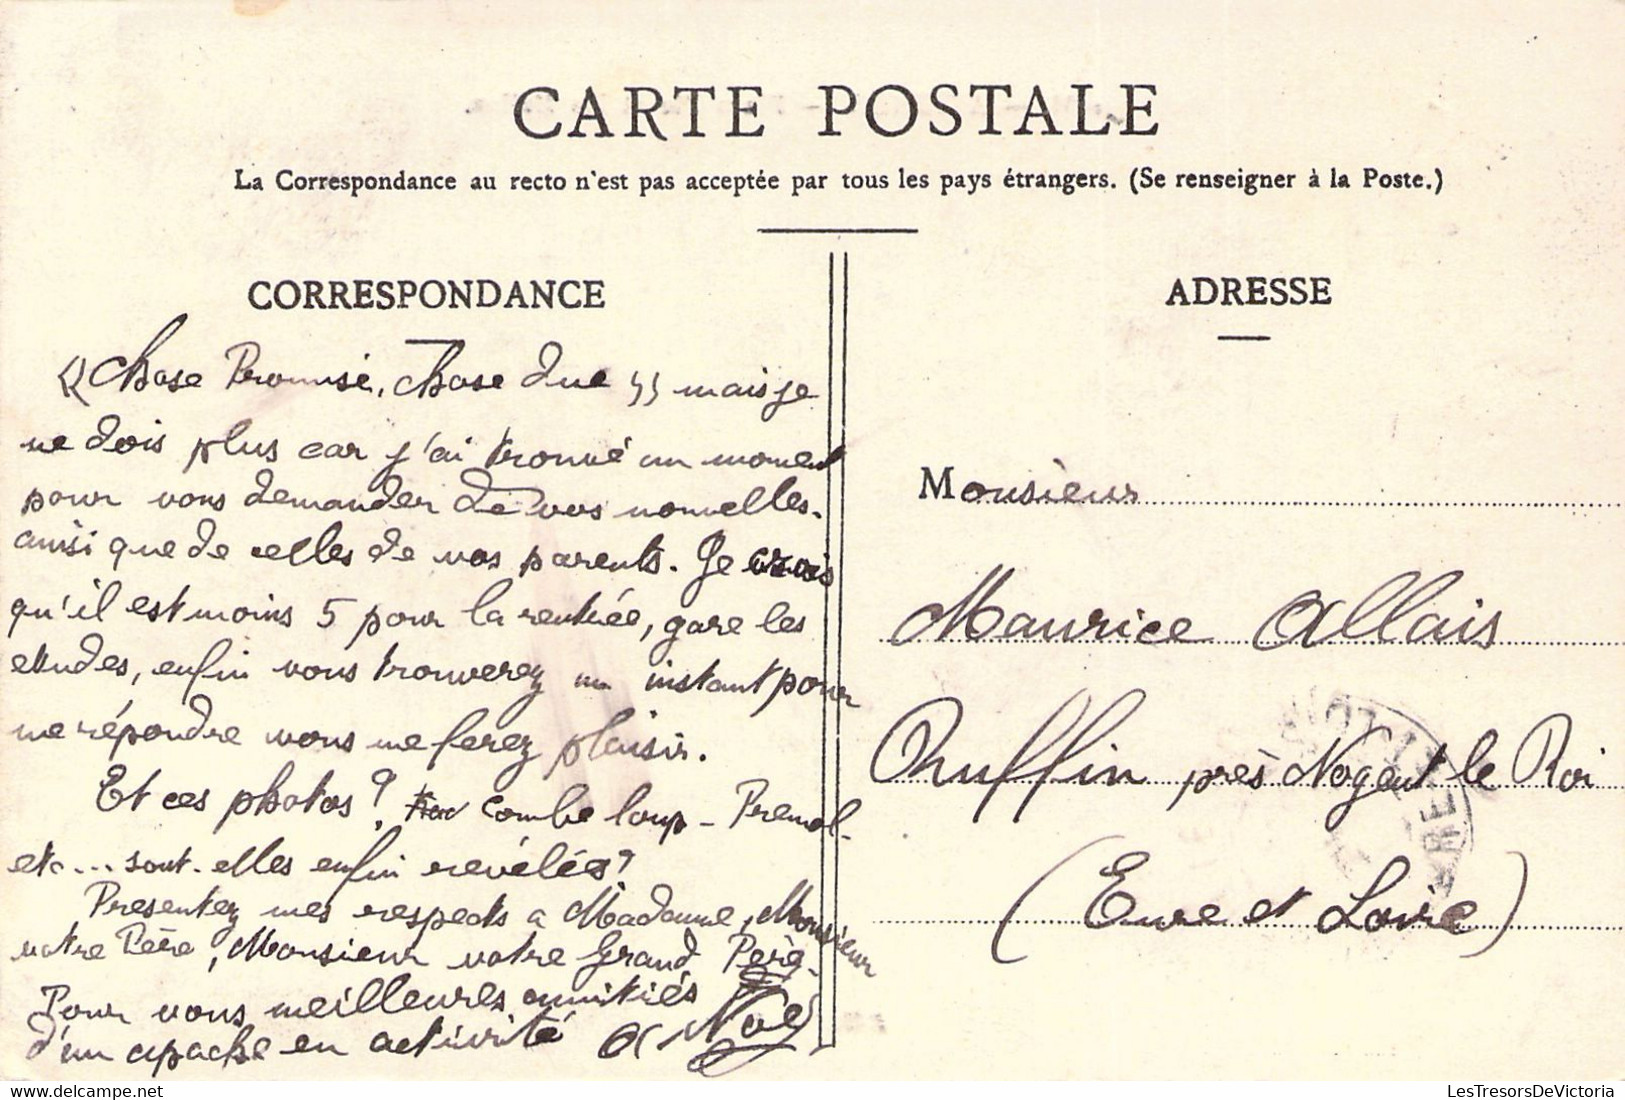 CARTE POSTALE
La Correspondance au recto n'est pas acceptée par tous les pays étrangers. (Se renseigner à la Poste.)
CORRESPONDANCE
« Chose Promise, chose due » mais je
ne dois plus car j'ai trouvé un moment
pour vous demander de vos nouvelles.
ainsi que de celles de vos parents. Je crois
qu'il est moins 5 pour la rentrée, gare les
etudes, enfin vous trouverez un instant pour
me répondre vous me ferez plaisir.
Et ces photos? Combe loup - Premol -
etc... sont-elles enfin revélées?
Presentez mes respects a Madame, Monsieur
votre Père, Monsieur votre Grand Père.
Pour vous meilleures amitiés
d'un apache en activité
ADRESSE
Monsieur
Maurice Allais
Ruffin près Nogent le Roi
(Eure et Loire)
LesTresorsDeVictoria